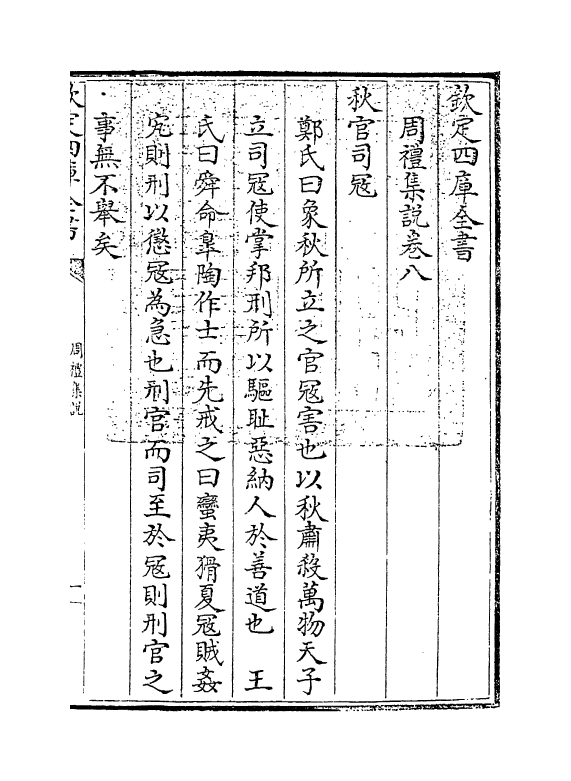 欽定四庫全書
周禮集說卷八
秋官司冦
鄭氏曰象秋所立之官冦害也以秋肅殺萬物天子
立司冦使掌邦刑所以驅耻惡納人於善道也　王
氏曰舜命臯陶作士而先戒之曰蠻夷猾夏冦賊姦
宄則刑以懲冦為急也刑官而司至於冦則刑官之
事無不舉矣
欽定四庫全書
周禮集說
一